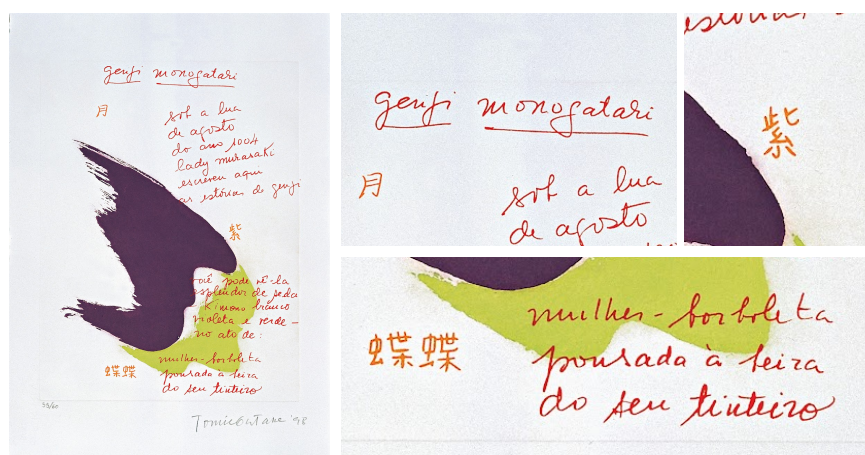 genji monogatari
月
sob a lua
de agosto
do ano 1004
lady murasaki
escreveu aqui
as estórias de genji
紫
você pode vê-la
esplendor de seda
kimono branco
violeta e verde –
no ato de:
mulher-borboleta
蝶蝶 pousada à beira
do seu tinteiro
Tomie Ohtake '98
genji monogatari
月
sob a lua
de agosto
紫
mulher-borboleta
蝶蝶 pousada à beira
do seu tinteiro